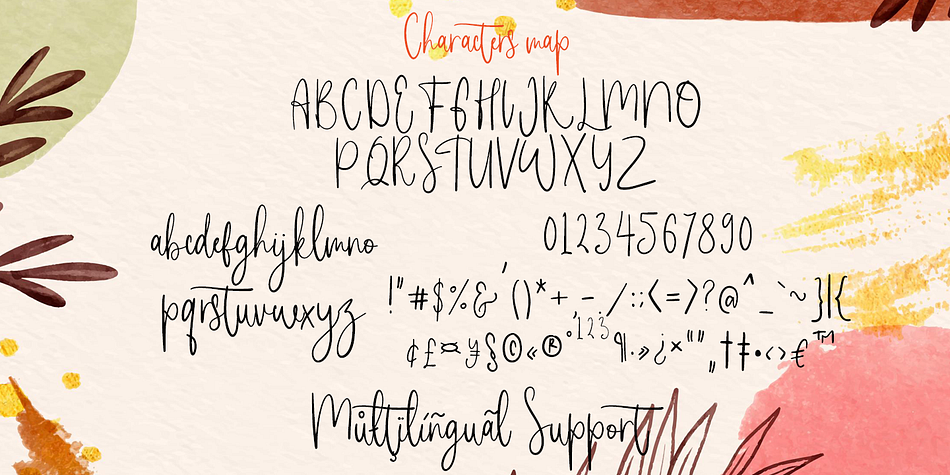 Characters map
ABCDEFGHIJKLMNO
PQRSTUVWXYZ
abcdefghijklmno
pqrstuvwxyz
01234567890
!"#$%&'()*+,-./:;<=>?@^_`~}|{
¢£¤¥§©«®°¹²³¶·»¿×“”„†‡•‹›€™
Můltįlíñguãl Support